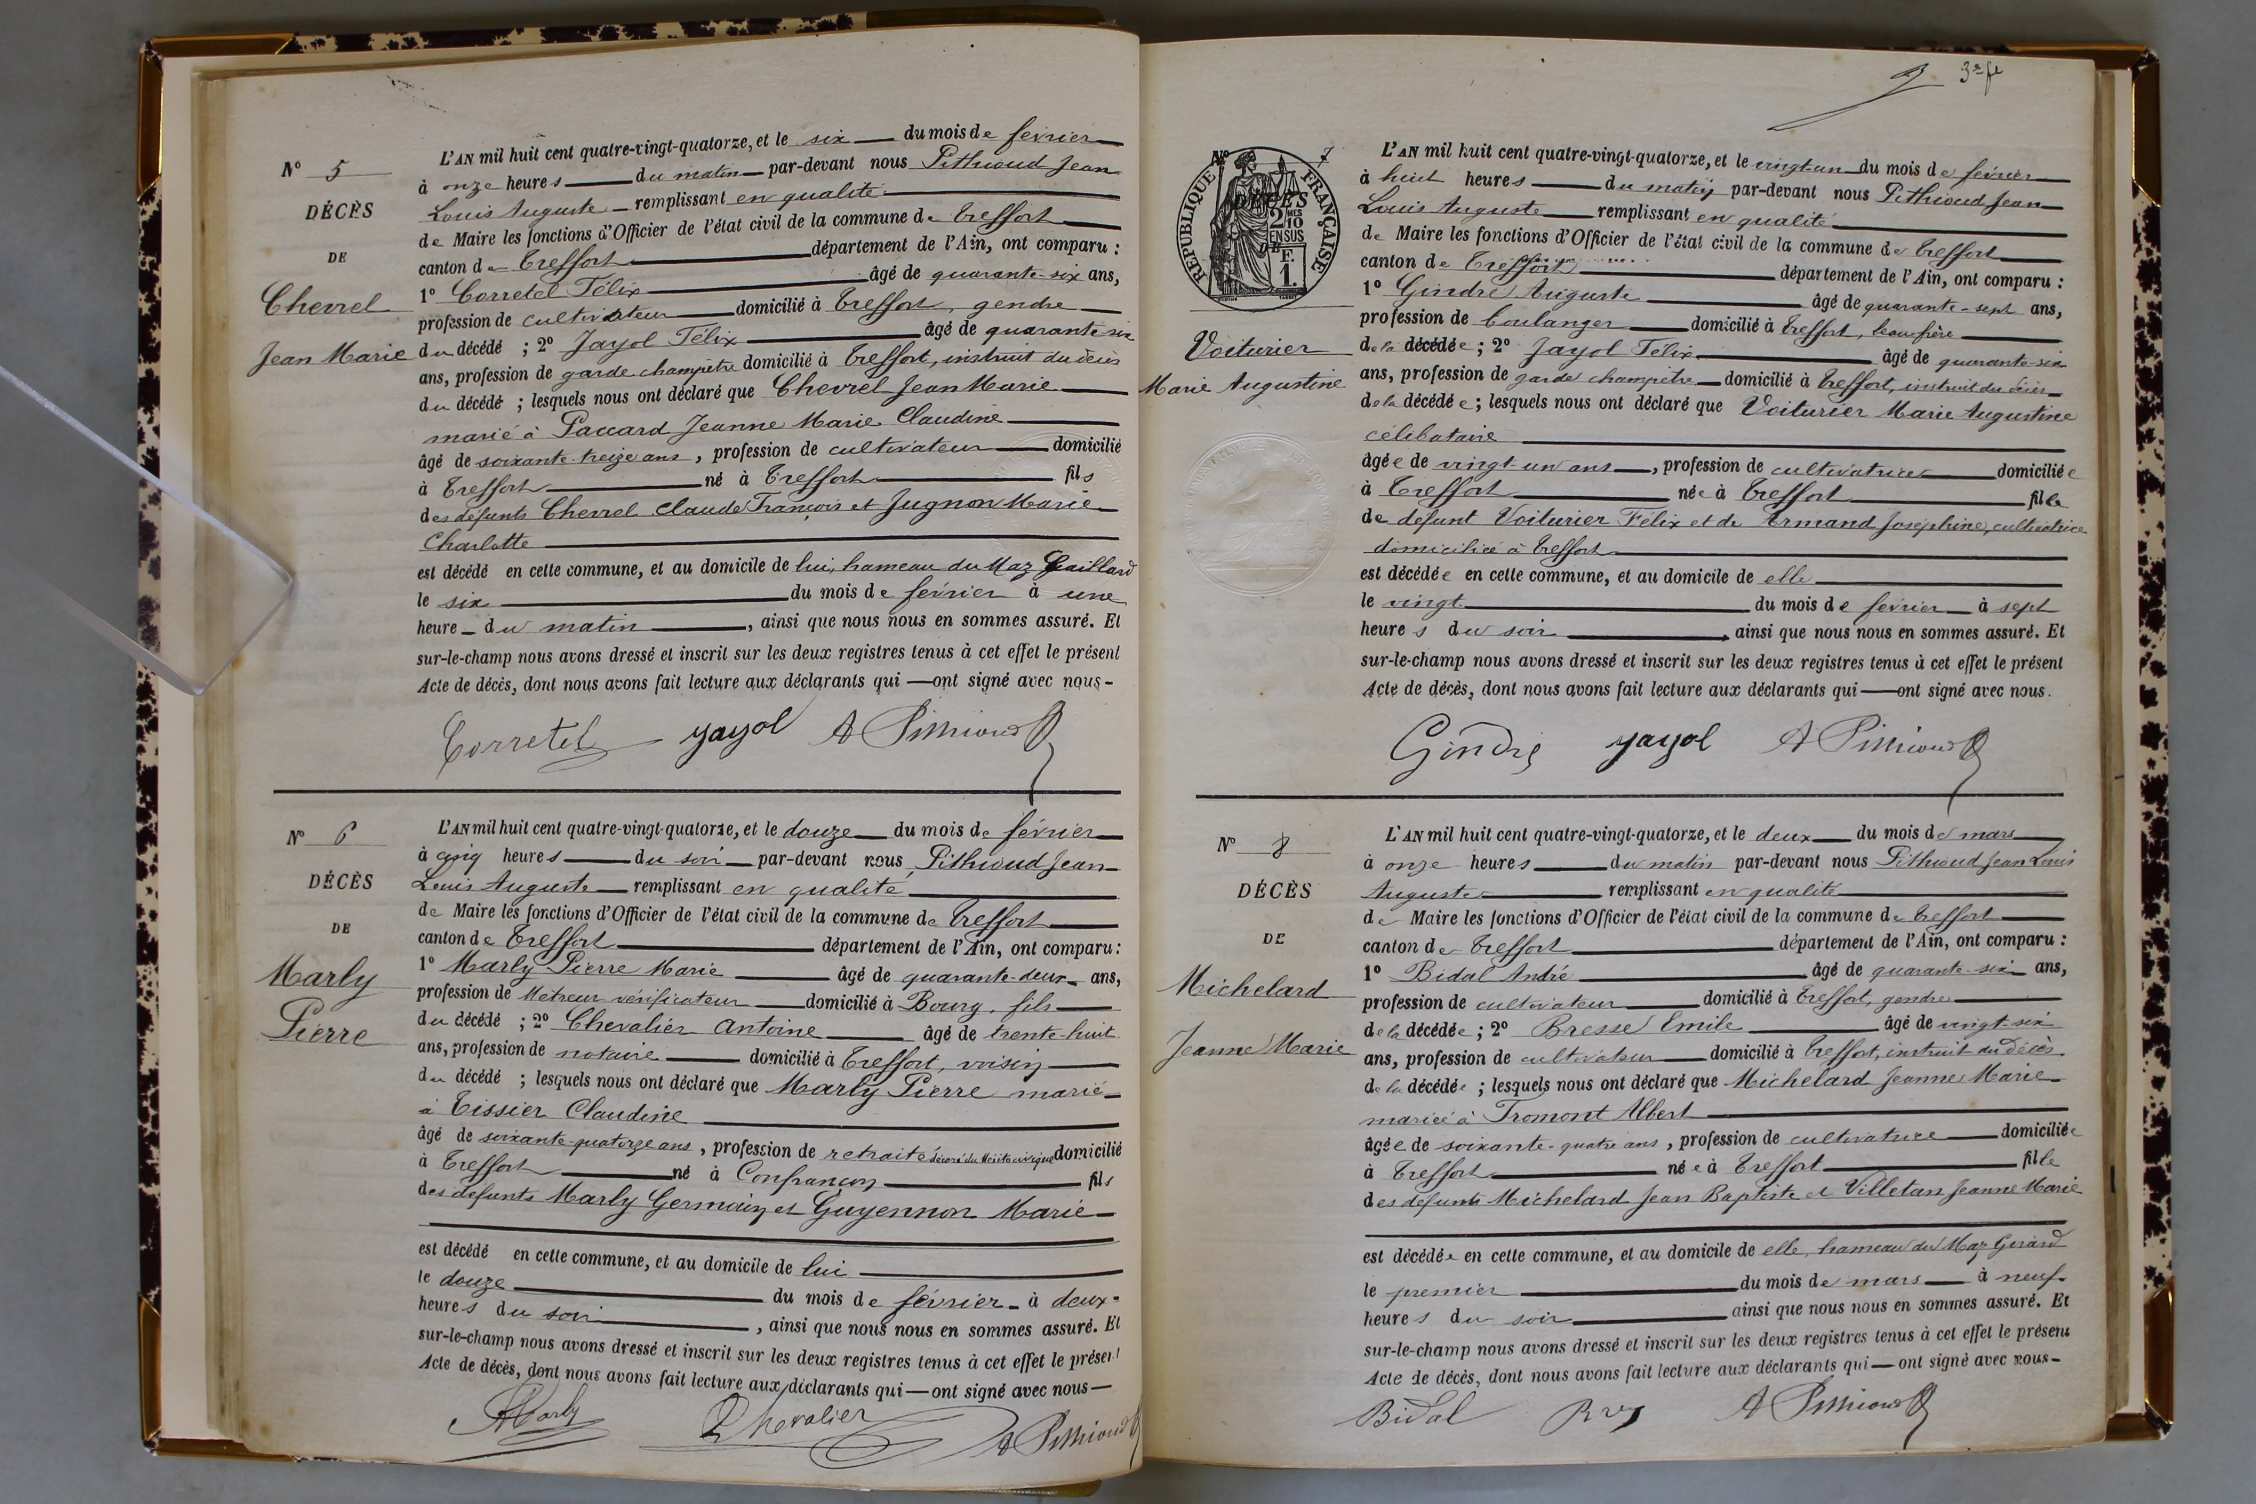 N° 5
DÉCÈS
DE
Chevrel
Jean Marie
L'AN mil huit cent quatre-vingt-quatorze, et le six du mois de février
à onze heures du matin par-devant nous Pithioud Jean
Louis Auguste remplissant en qualité
de Maire les fonctions d'Officier de l'état civil de la commune de Treffort
canton de Treffort département de l'Ain, ont comparu :
1° Corretel Félix âgé de quarante-six ans,
profession de cultivateur domicilié à Treffort, gendre
du décédé ; 2° Jayol Félix âgé de quarante-six
ans, profession de garde champêtre domicilié à Treffort, instruit du décès
du décédé ; lesquels nous ont déclaré que Chevrel Jean Marie
marié à Paccard Jeanne Marie Claudine
âgé de soixante-treize ans, profession de cultivateur domicilié
à Treffort né à Treffort fils
des défunts Chevrel Claude François et Jugnon Marie
Charlotte
est décédé en cette commune, et au domicile de lui, hameau du Maz Gaillard
le six du mois de février à une
heure du matin, ainsi que nous nous en sommes assuré. Et
sur-le-champ nous avons dressé et inscrit sur les deux registres tenus à cet effet le présent
Acte de décès, dont nous avons fait lecture aux déclarants qui — ont signé avec nous -
Corretel Jayol A Pithioud
N° 6
DÉCÈS
DE
Marly
Pierre
L'AN mil huit cent quatre-vingt-quatorze, et le douze du mois de février
à cinq heures du soir par-devant nous Pithioud Jean
Louis Auguste remplissant en qualité
de Maire les fonctions d'Officier de l'état civil de la commune de Treffort
canton de Treffort département de l'Ain, ont comparu :
1° Marly Pierre Marie âgé de quarante-deux ans,
profession de Métreur vérificateur domicilié à Bourg, fils
du décédé ; 2° Chevalier Antoine âgé de trente-huit
ans, profession de notaire domicilié à Treffort, voisin
du décédé ; lesquels nous ont déclaré que Marly Pierre marié
à Tissier Claudine
âgé de soixante-quatorze ans, profession de retraité décoré du Mérite civique domicilié
à Treffort né à Confrançon fils
des défunts Marly Germain et Guyennon Marie
est décédé en cette commune, et au domicile de lui
le douze du mois de février à deux
heures du soir, ainsi que nous nous en sommes assuré. Et
sur-le-champ nous avons dressé et inscrit sur les deux registres tenus à cet effet le présent
Acte de décès, dont nous avons fait lecture aux déclarants qui — ont signé avec nous —
Marly Chevalier A Pithioud
3e ft
N° 7
RÉPUBLIQUE FRANÇAISE
DÉCÈS
2/10 MES
EN SUS
DE
F. 1.
Voiturier
Marie Augustine
L'AN mil huit cent quatre-vingt-quatorze, et le vingt-un du mois de février
à huit heures du matin par-devant nous Pithioud Jean
Louis Auguste remplissant en qualité
de Maire les fonctions d'Officier de l'état civil de la commune de Treffort
canton de Treffort département de l'Ain, ont comparu :
1° Gindre Auguste âgé de quarante-sept ans,
profession de boulanger domicilié à Treffort, beau-frère
de la décédée ; 2° Jayol Félix âgé de quarante-six
ans, profession de garde champêtre domicilié à Treffort, instruit du décès
de la décédée ; lesquels nous ont déclaré que Voiturier Marie Augustine
célibataire
âgée de vingt-un ans, profession de cultivatrice domiciliée
à Treffort née à Treffort fille
de défunt Voiturier Félix et de Armand Joséphine, cultivatrice
domiciliée à Treffort
est décédée en cette commune, et au domicile de elle
le vingt du mois de février à sept
heures du soir, ainsi que nous nous en sommes assuré. Et
sur-le-champ nous avons dressé et inscrit sur les deux registres tenus à cet effet le présent
Acte de décès, dont nous avons fait lecture aux déclarants qui — ont signé avec nous.
Gindre Jayol A Pithioud
N° 8
DÉCÈS
DE
Michelard
Jeanne Marie
L'AN mil huit cent quatre-vingt-quatorze, et le deux du mois de mars
à onze heures du matin par-devant nous Pithioud Jean Louis
Auguste remplissant en qualité
de Maire les fonctions d'Officier de l'état civil de la commune de Treffort
canton de Treffort département de l'Ain, ont comparu :
1° Bidal André âgé de quarante-six ans,
profession de cultivateur domicilié à Treffort, gendre
de la décédée ; 2° Bresse Emile âgé de vingt-six
ans, profession de cultivateur domicilié à Treffort, instruit du décès
de la décédée ; lesquels nous ont déclaré que Michelard Jeanne Marie
mariée à Fromont Albert
âgée de soixante-quatre ans, profession de cultivatrice domiciliée
à Treffort née à Treffort fille
des défunts Michelard Jean Baptiste et Villetan Jeanne Marie
est décédée en cette commune, et au domicile de elle, hameau du Maz Girard
le premier du mois de mars à neuf
heures du soir ainsi que nous nous en sommes assuré. Et
sur-le-champ nous avons dressé et inscrit sur les deux registres tenus à cet effet le présent
Acte de décès, dont nous avons fait lecture aux déclarants qui — ont signé avec nous -
Bidal A Pithioud